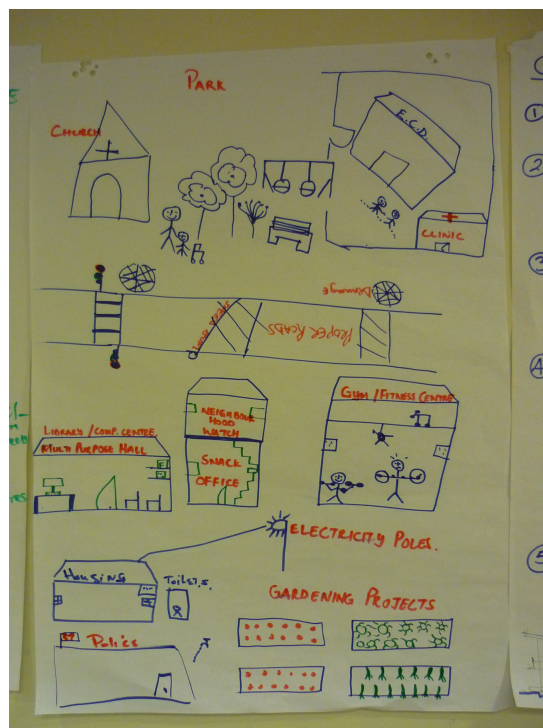 PARK
CHURCH
E.C.D.
CLINIC
DRAINAGE
PROPER ROADS
LIBRARY / COMP. CENTRE
MULTI PURPOSE HALL
NEIGHBOUR
HOOD
WATCH
SNACK
OFFICE
GYM / FITNESS CENTRE
ELECTRICITY POLES.
HOUSING
Toilets.
GARDENING PROJECTS
Police
1
2
3
4
5